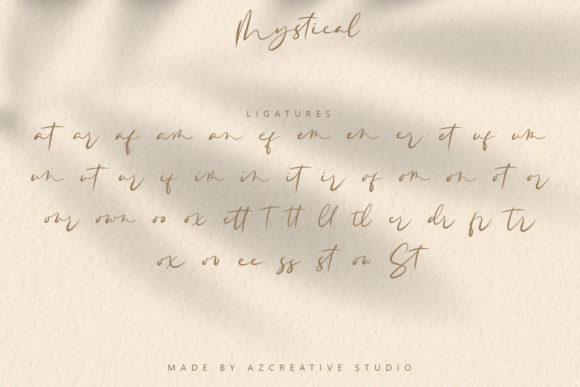 Mystical
LIGATURES
at ar af am an ef em en er et uf um
un ut ur if im in it ir of om on ot or
our own oo ox ett T tt ll tl er dr fr tr
ox ov ee ss st ow St
MADE BY AZCREATIVE STUDIO